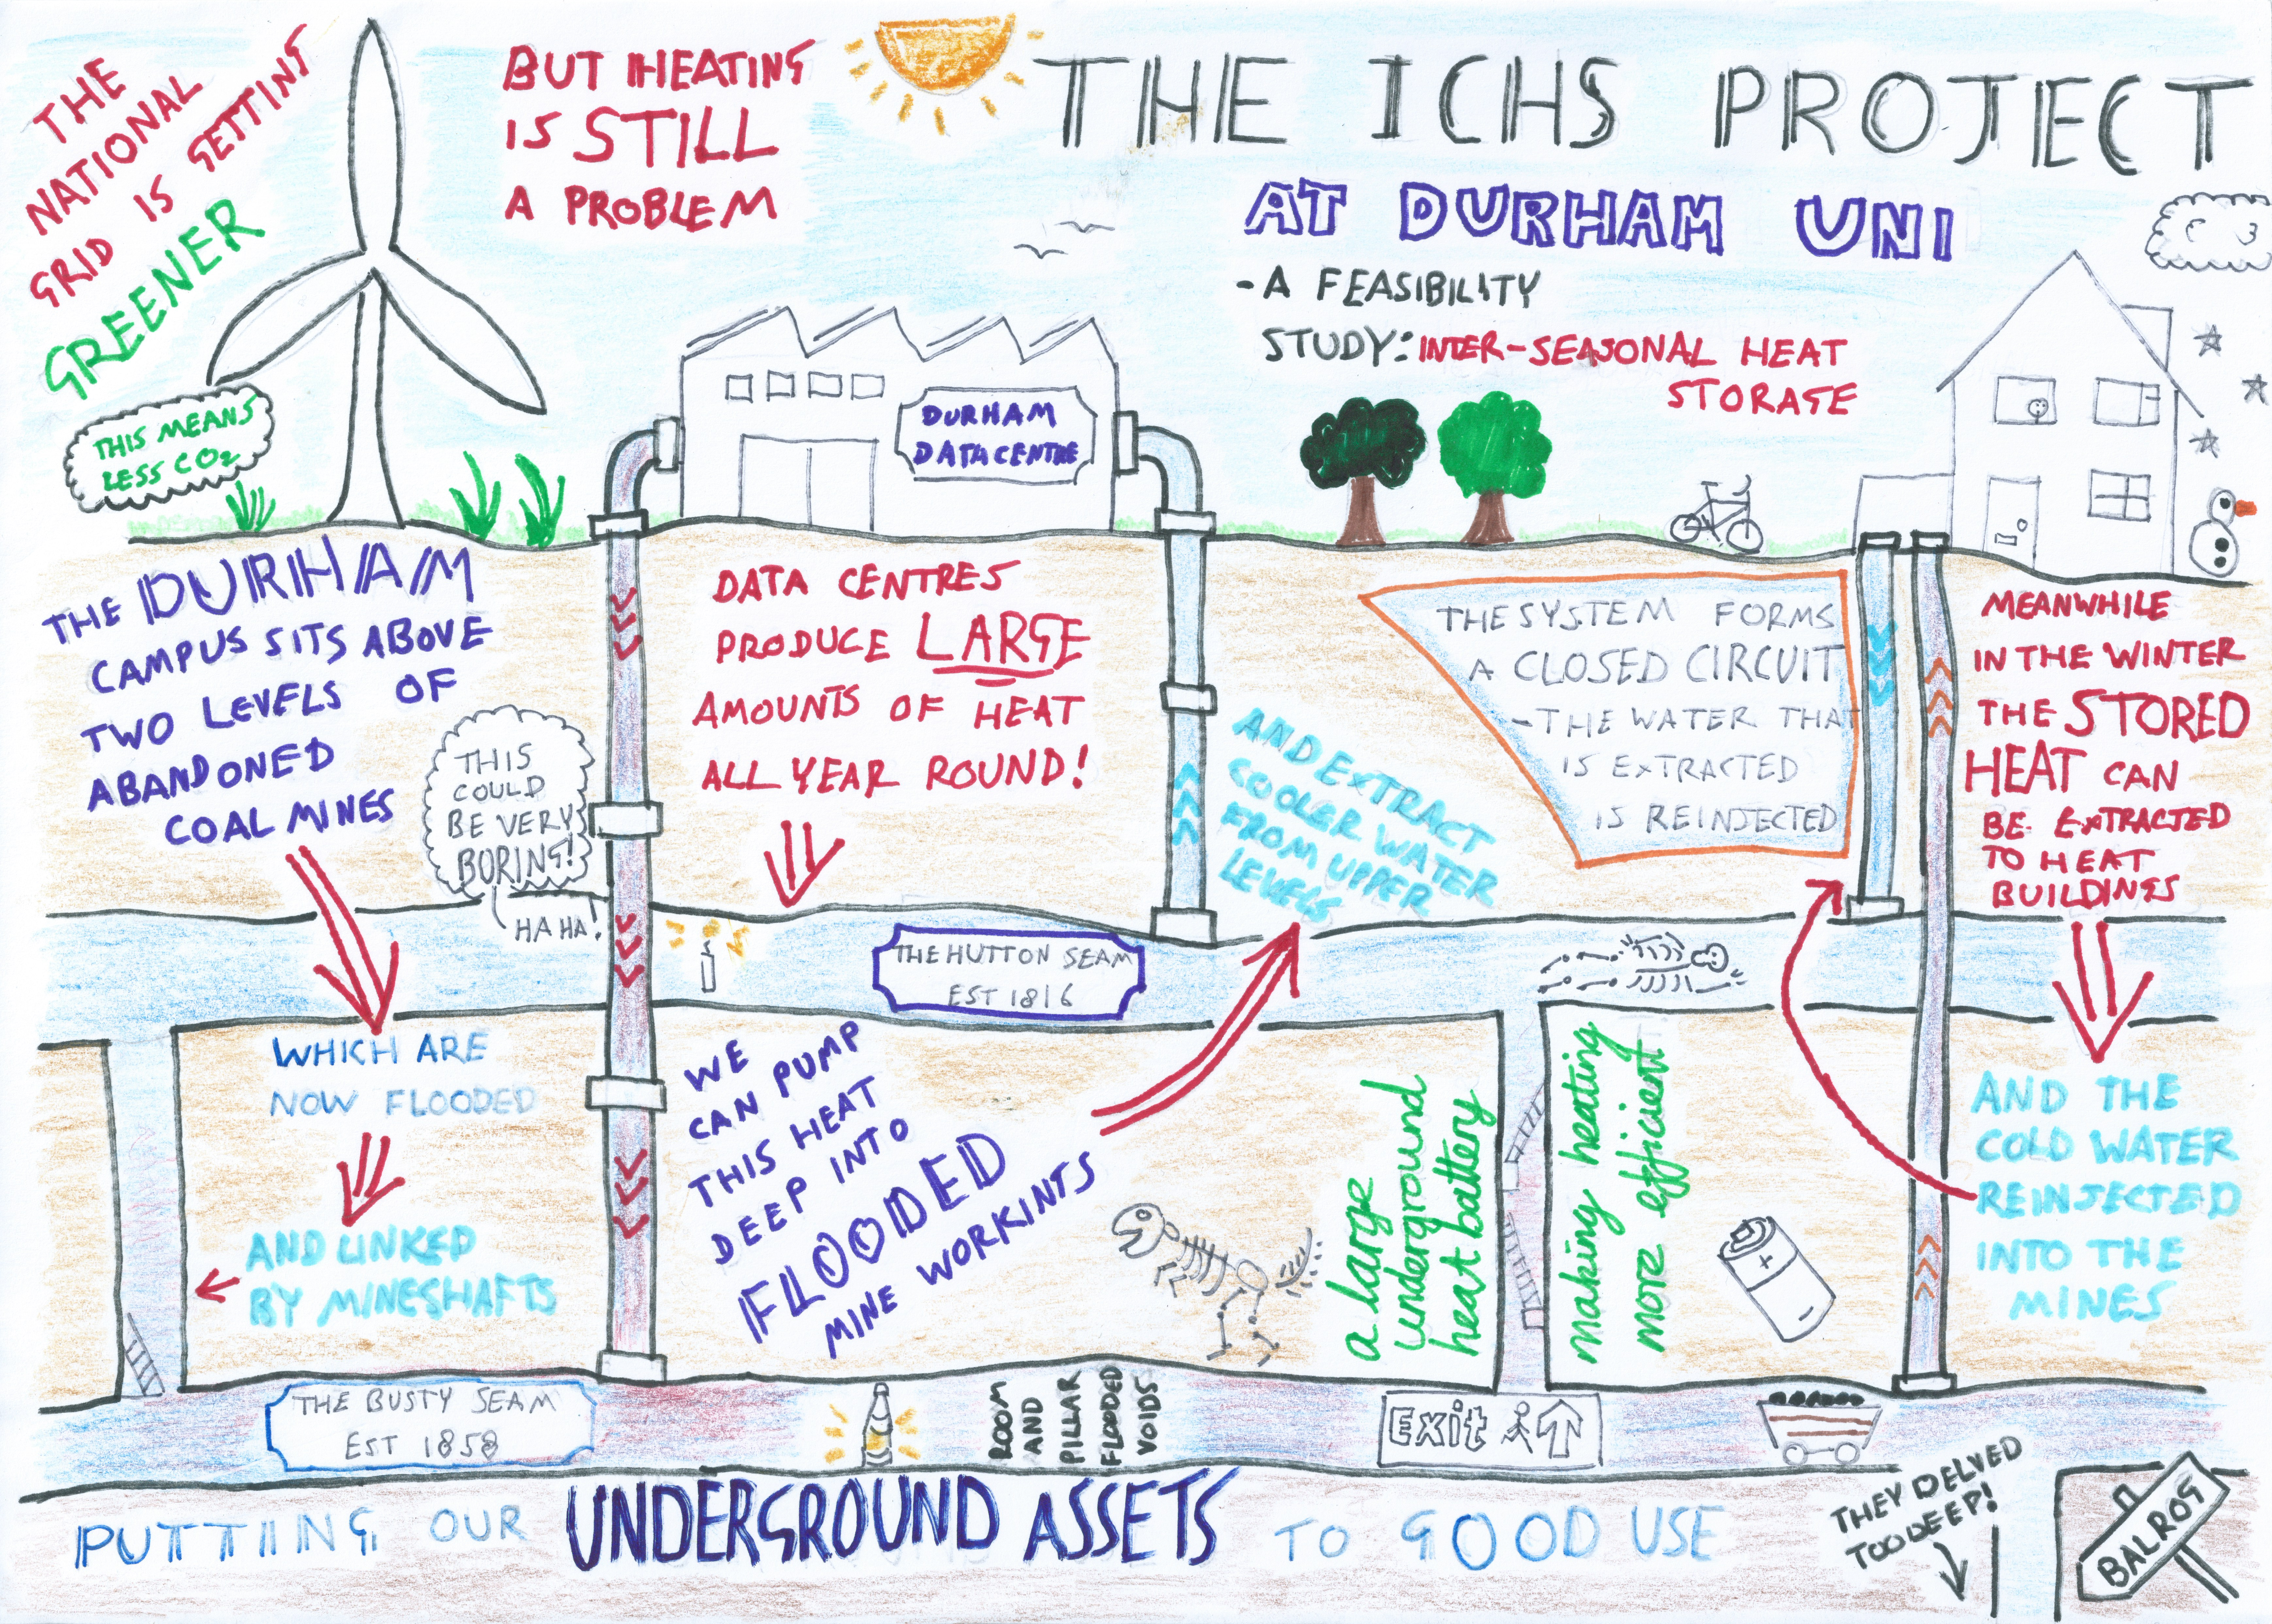 THE
NATIONAL
GRID IS GETTING
GREENER
THIS MEANS
LESS CO2
BUT HEATING
IS STILL
A PROBLEM
THE ICHS PROJECT
AT DURHAM UNI
-A FEASIBILITY
STUDY: INTER-SEASONAL HEAT
STORAGE
DURHAM
DATA CENTRE
THE DURHAM
CAMPUS SITS ABOVE
TWO LEVELS OF
ABANDONED
COAL MINES
THIS
COULD
BE VERY
BORING!
HA HA!
DATA CENTRES
PRODUCE LARGE
AMOUNTS OF HEAT
ALL YEAR ROUND!
AND EXTRACT
COOLER WATER
FROM UPPER
LEVELS
THE SYSTEM FORMS
A CLOSED CIRCUIT
-THE WATER THAT
IS EXTRACTED
IS REINJECTED
MEANWHILE
IN THE WINTER
THE STORED
HEAT CAN
BE EXTRACTED
TO HEAT
BUILDINGS
THE HUTTON SEAM
EST 1816
WHICH ARE
NOW FLOODED
AND LINKED
BY MINESHAFTS
WE
CAN PUMP
THIS HEAT
DEEP INTO
FLOODED
MINE WORKINGS
a large
underground
heat battery
making heating
more efficient
+
-
AND THE
COLD WATER
REINJECTED
INTO THE
MINES
THE BUSTY SEAM
EST 1858
ROOM
AND
PILLAR
FLOODED
VOIDS
Exit
THEY DELVED
TOO DEEP!
BALROG
PUTTING OUR UNDERGROUND ASSETS TO GOOD USE